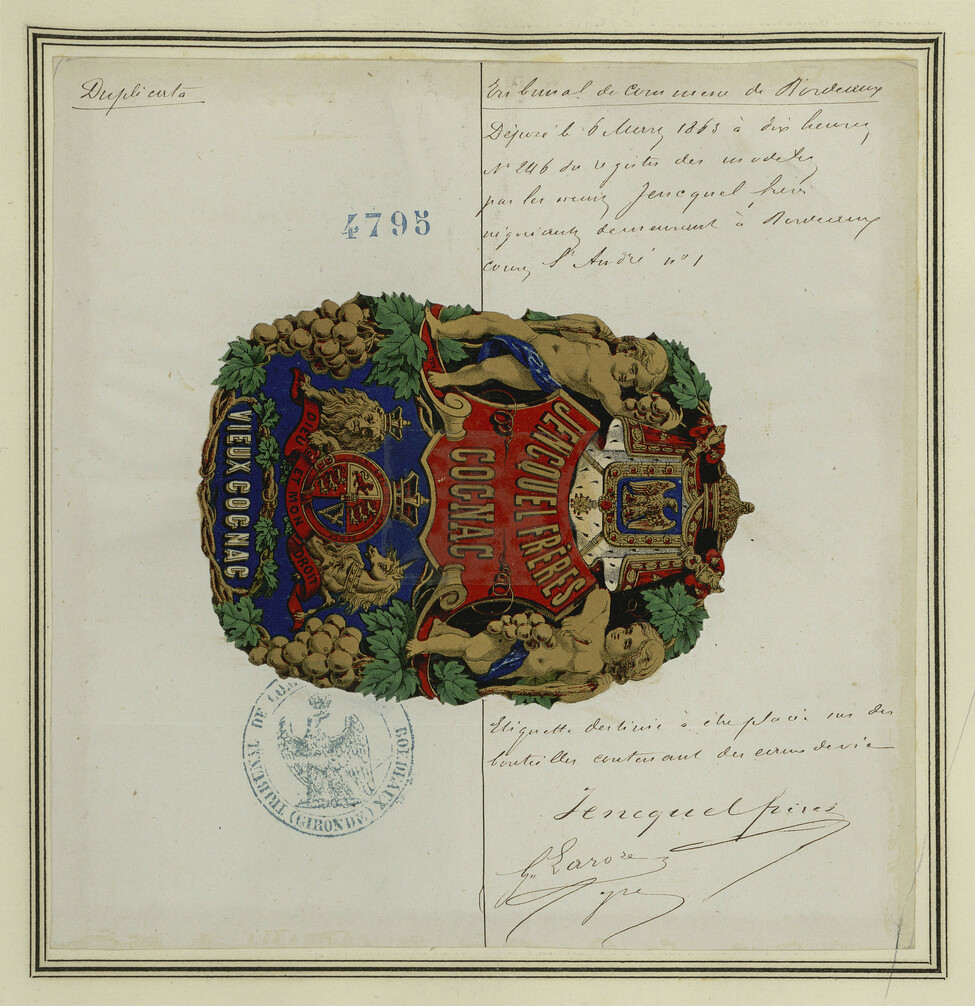 Duplicata
4795
Tribunal de commerce de Bordeaux
Déposé le 6 Mars 1863 à dix heures
N° 246 du registre des modèles
par les sieurs Jencquel frères
négociants demeurant à Bordeaux
cours St André n° 1
JENCQUEL FRÈRES
COGNAC
DIEU ET MON DROIT
VIEUX COGNAC
TRIBUNAL DE COM BORDEAUX
(GIRONDE)
Etiquette destinée à être placée sur des
bouteilles contenant des eaux de vie
Jencquel frères
Larose